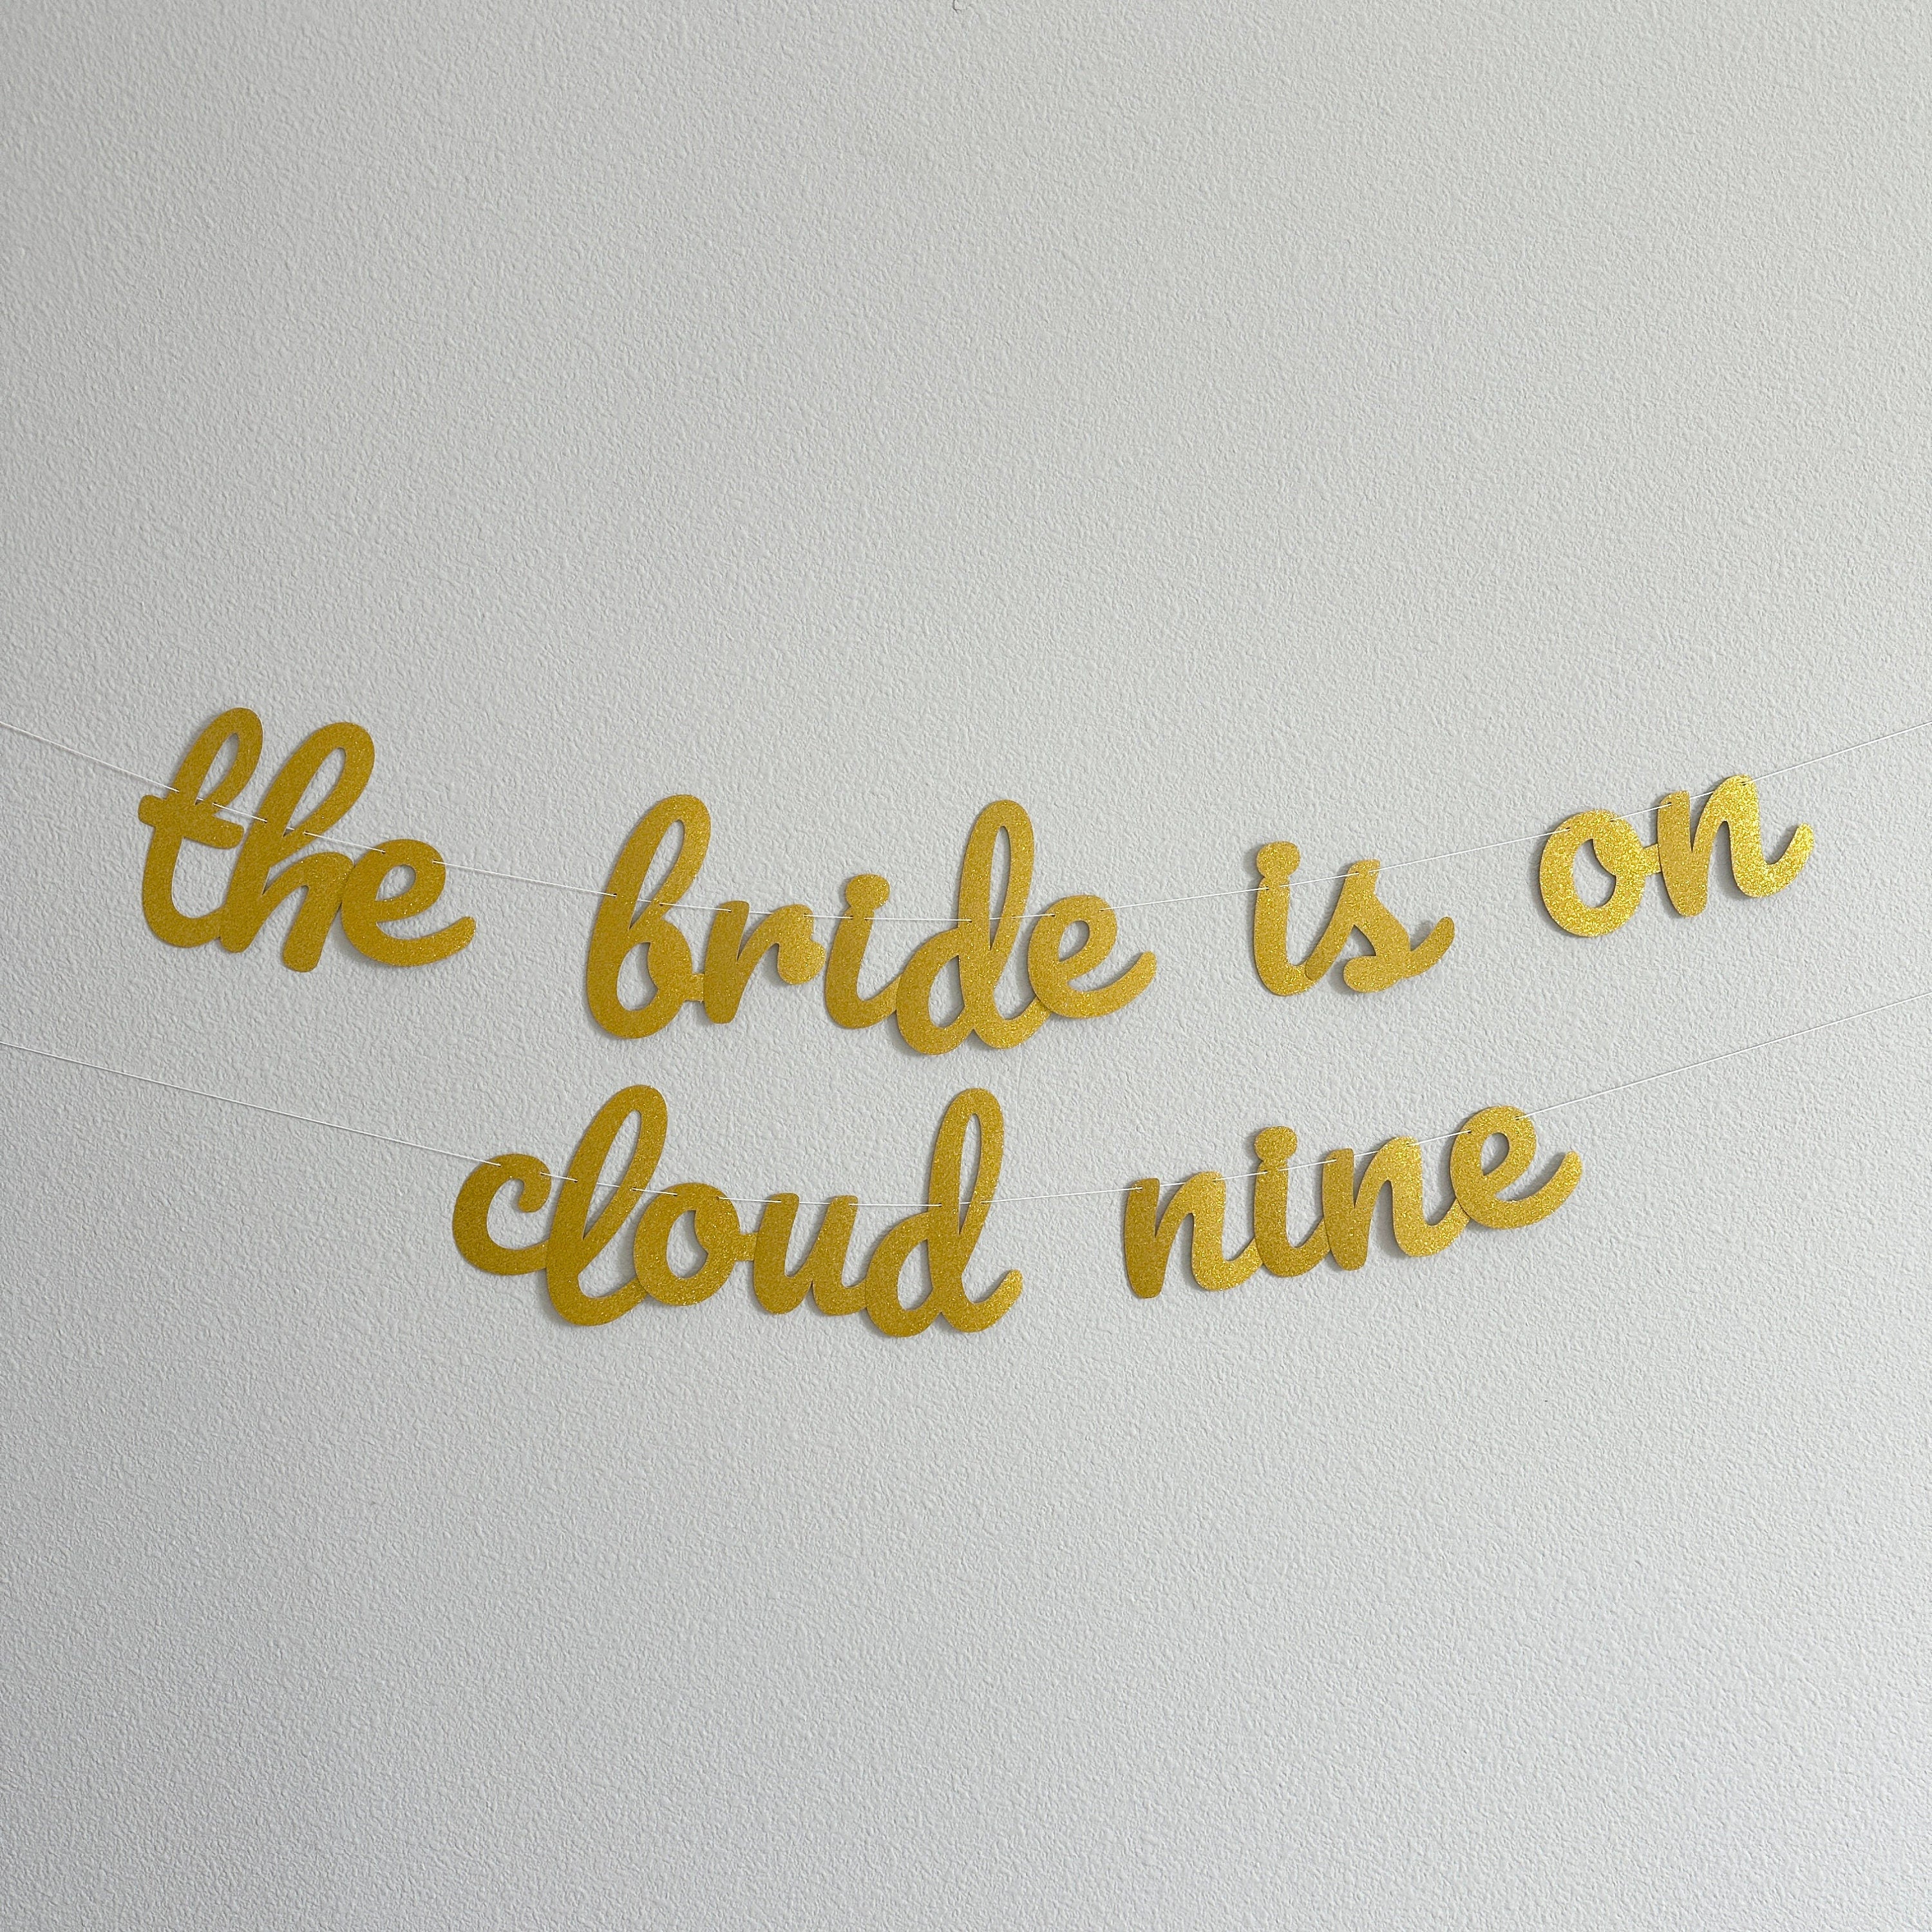 the bride is on
cloud nine